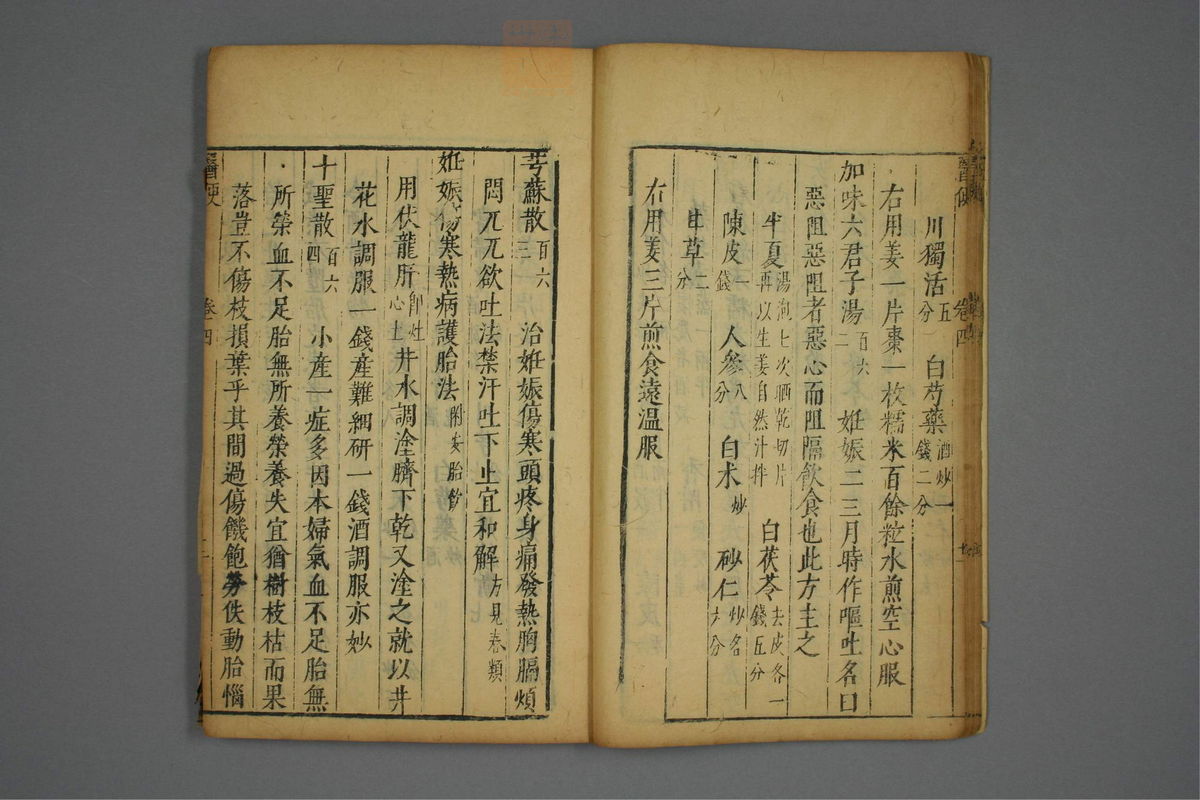 川獨活五分 白芍藥酒炒一錢二分
右用姜一片棗一枚糯米百餘粒水煎空心服
加味六君子湯百六二 妊娠二三月時作嘔吐名曰
惡阻惡阻者惡心而阻隔飲食也此方主之
半夏湯泡七次晒乾切片再以生姜自然汁拌 白茯苓去皮各一錢五分
陳皮一錢 人參八分 白朮炒 砂仁炒各六分
甘草二分
右用姜三片煎食遠温服
芎蘇散百六三 治妊娠傷寒頭疼身痛發熱胸膈煩
悶兀兀欲吐法禁汗吐下止宜和解方見春類
妊娠傷寒熱病護胎法附安胎飲
用伏龍肝即灶心土井水調塗臍下乾又塗之就以井
花水調服一錢產難細研一錢酒調服亦妙
十聖散百六四 小產一症多因本婦氣血不足胎無
所榮血不足胎無所養榮養失宜猶樹枝枯而果
落豈不傷枝損葉乎其間過傷饑飽勞佚動胎惱
醫便 卷四